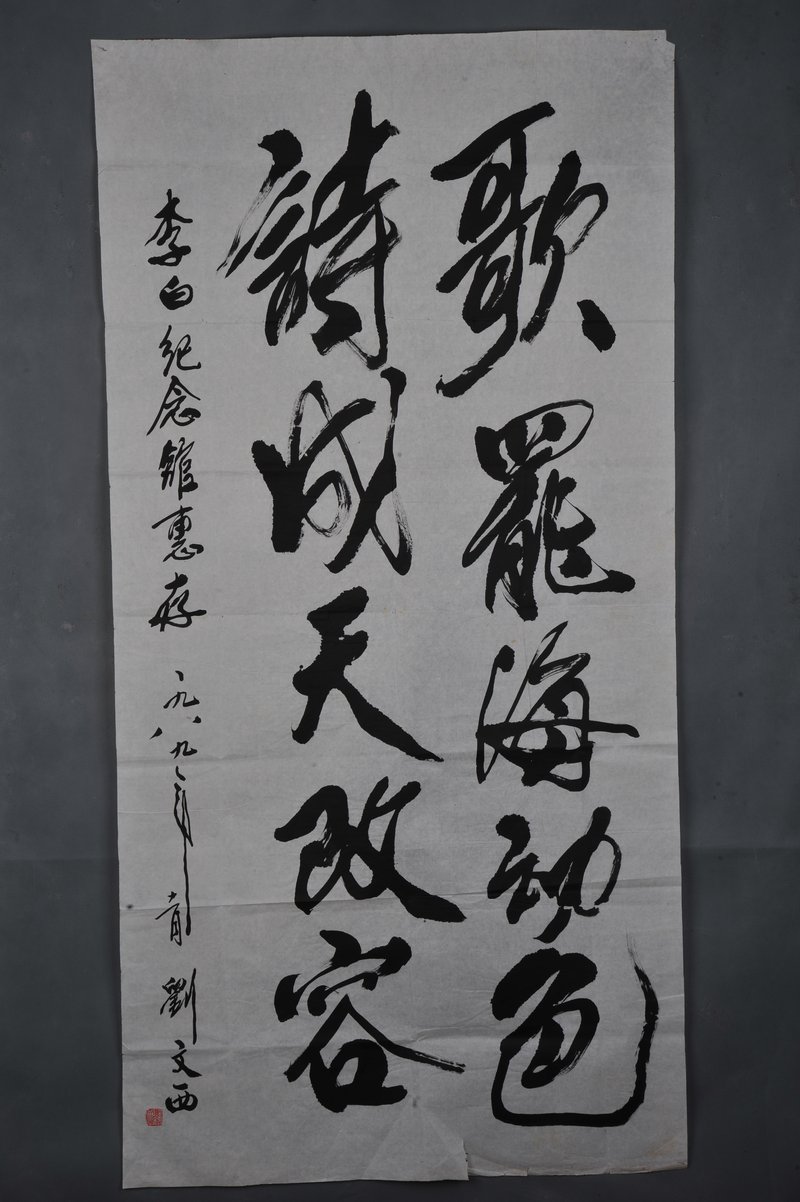 歌罷海動色
詩成天改容
李白纪念館惠存 一九八九年十月 劉文西